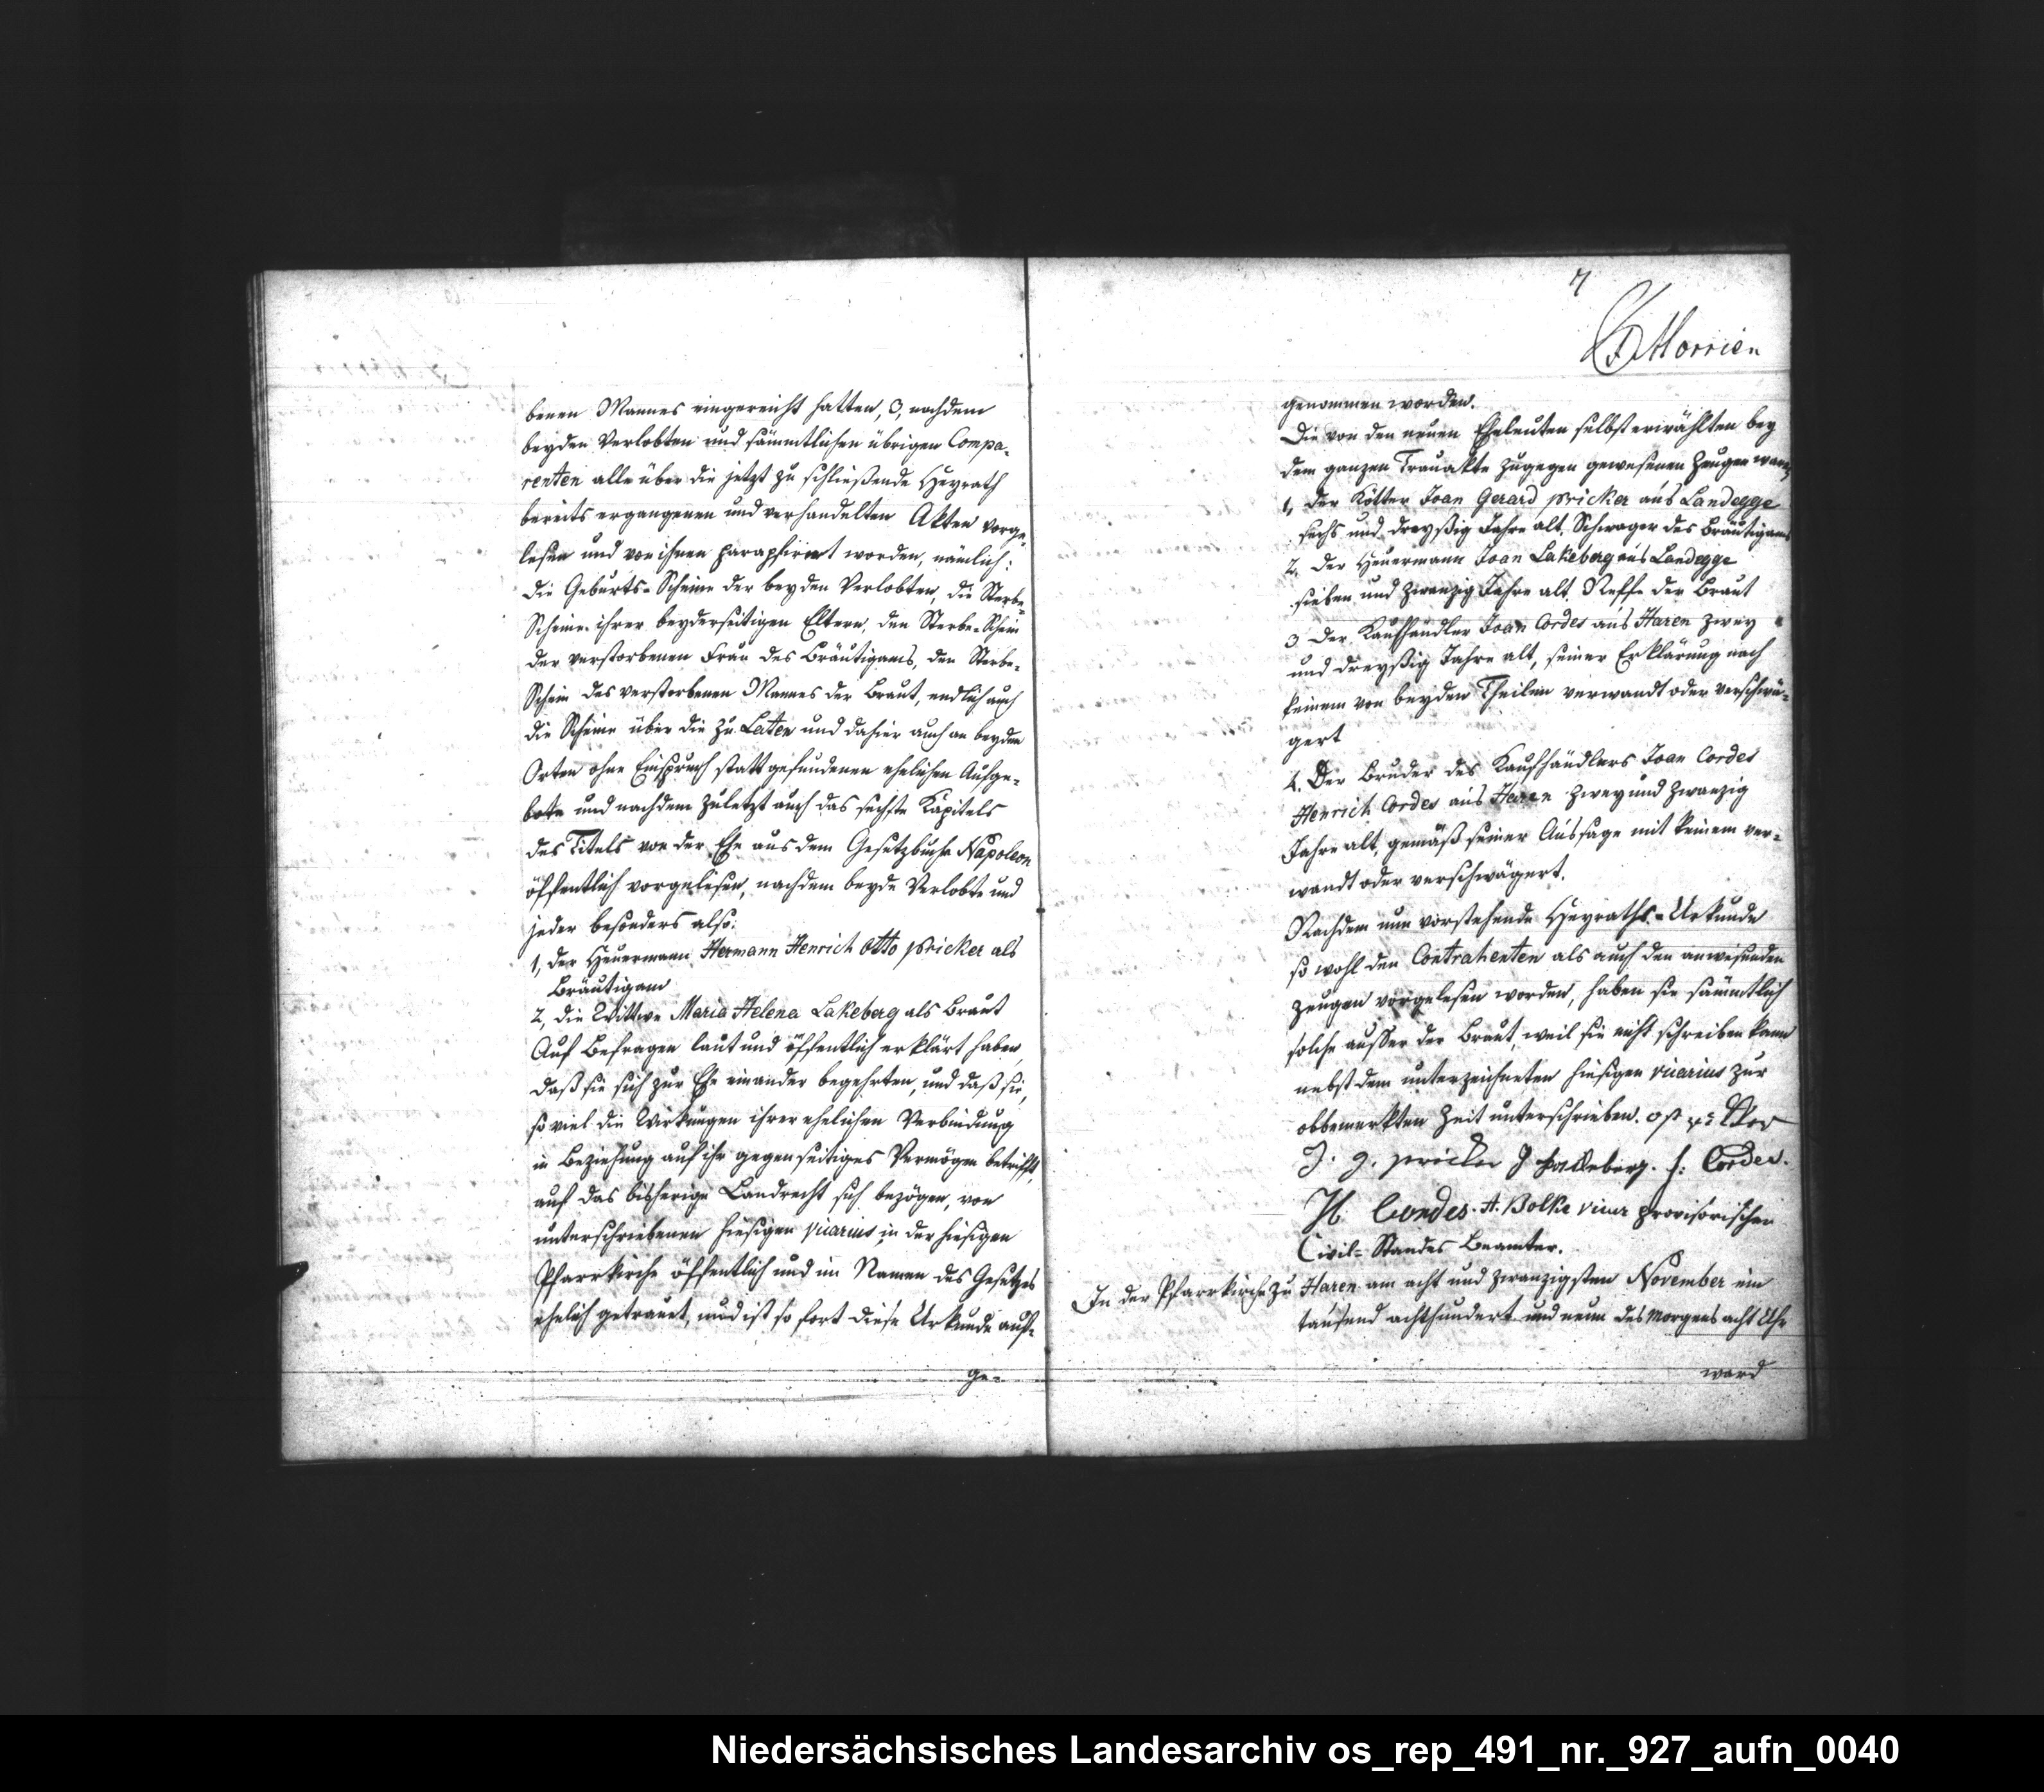 benen Mannes eingereicht hatten, 3, nachdem
beyden Verlobten und sämmtlichen übrigen Compa-
renten alle über die jetzt zu schließende Heyrath
bereits ergangenen und verhandelten Akten vorge-
lesen und von ihnen paraphirert worden, nämlich:
die Geburts-Scheine der beyden Verlobten, die Sterbe-
Scheine ihrer beyderseitigen Eltern, den Sterbe-Schein
der verstorbenen Frau des Bräutigams, den Sterbe-
Schein des verstorbenen Mannes der Braut, endlich auch
die Scheine über die zu Laten und dahier auch an beyden
Orten ohne Einspruch statt gefundenen ehelichen Aufge-
bote und nachdem zuletzt auch das sechste Kapitels
des Titels von der Ehe aus dem Gesetzbuche Napoleon
öffentlich vorgelesen, nachdem beyde Verlobte und
jeder besonders also:
1, der Heuermann Hermann Henrich Otto pricker als
Bräutigam
2, die Wittwe Maria Helena Lakeberg als Braut
Auf Befragen laut und öffentlich erklärt haben,
daß sie sich zur Ehe einander begehrten, und daß sie,
so viel die Wirkungen ihrer ehelichen Verbindung
in Beziehung auf ihr gegenseitiges Vermögen betrifft,
auf das bisherige Landrecht sich bezögen, von
unterschriebenen hiesigen vicarius in der hiesigen
Pfarrkirche öffentlich und im Namen des Gesetzes
ehelich getrauet, und ist so fort diese Urkunde auf-
ge-
7
Morrien
genommen worden.
Die von den neuen Eheleuten selbst erwählten bey
dem ganzen Trauakte zugegen gewesenen Zeugen waren
1, der Kötter Joan Gerard pricker aus Landegge
sechs und dreyßig Jahre alt, Schwager des Bräutigams
2. Der Heuermann Joan Lakeberg aus Landegge
sieben und zwanzig Jahre alt Neffe der Braut
3 Der Kaufhändler Joan Cordes aus Haren zwey
und dreyßig Jahre alt, seiner Erklärung nach
keinem von beyden Theilen verwandt oder verschwä-
gert
4. Der Bruder des Kaufhändlers Joan Cordes
Henrich Cordes aus Haren zwey und zwanzig
Jahre alt, gemäß seiner Aussage mit keinem ver-
wandt oder verschwägert.
Nachdem nun vorstehende Heyraths-Urkunde
so wohl den Contrahenten als auch den anwesenden
Zeugen vorgelesen worden, haben sie sämmtlich
solche ausser der Braut, weil sie nicht schreiben kann
nebst dem unterzeichneten hiesigen vicarius zur
obbemerkten Zeit unterschrieben.
J. g. pricker J Lakeberg. J: Cordes.
H. Cordes. A. Bolke vicar provisorischer
Civil-Standes Beamter.
In der Pfarrkirche zu Haren am acht und zwanzigsten November ein
tausend achthundert und neun des Morgens acht Uhr
ward
Niedersächsisches Landesarchiv os_rep_491_nr._927_aufn_0040